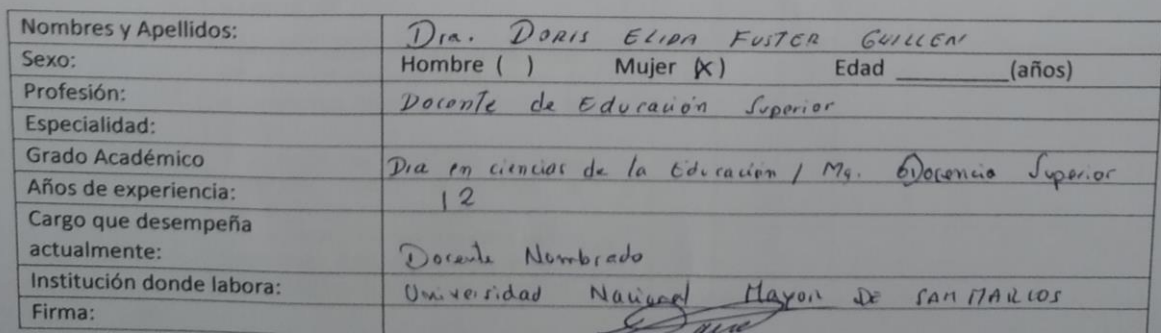 Nombres y Apellidos: Dra. DORIS ELIDA FUSTER GUILLEN
Sexo: Hombre ( ) Mujer (X) Edad ________ (años)
Profesión: Docente de Educación Superior
Especialidad:
Grado Académico Dra en ciencias de la Educación / Mg. Docencia Superior
Años de experiencia: 12
Cargo que desempeña
actualmente: Docente Nombrado
Institución donde labora: Universidad Nacional Mayor DE SAN MARCOS
Firma: